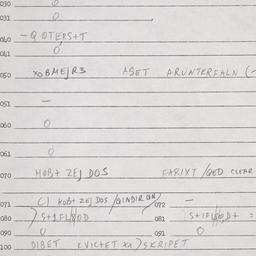 030 0
031 0
040 - Q OTERS+T
041 0
050 XOBMEJR3 ASET ARUNTERFALN (-
051 -
060 0
061 0
070 HOB+ ZEJ DOS FARIXT /QED CLEAR
071 C) HOB+ ZEJ DOS /QINDIR ON/ 072 -
080 081
090 0 091 0
100 DIBET KVICHET XX) SKRIPET